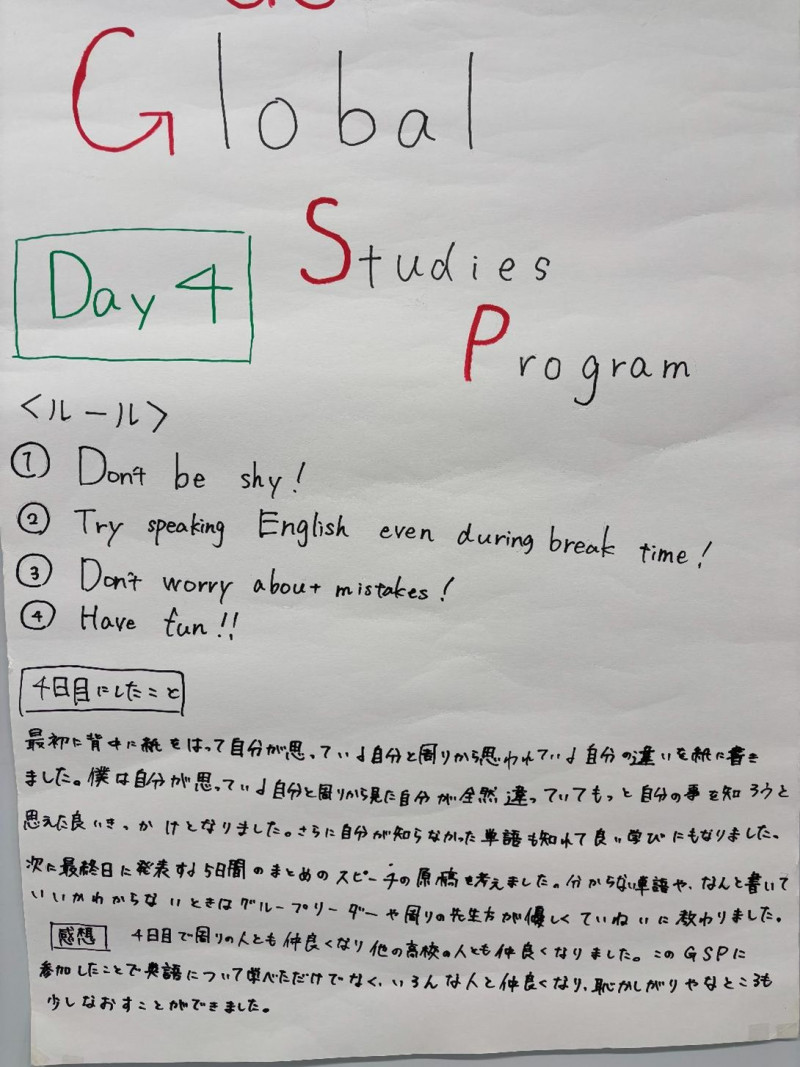 Global
Studies
Day 4
Program
<ルール>
① Don't be shy!
② Try speaking English even during break time!
③ Don't worry about mistakes!
④ Have fun!!
4日目にしたこと
最初に背中に紙をはって自分が思っている自分と周りから思われている自分の違いを紙に書き
ました。僕は自分が思っている自分と周りから見た自分が全然違っていてもっと自分の事を知ろうと
思えた良いきっかけとなりました。さらに自分が知らなかった単語も知れて良い学びにもなりました。
次に最終日に発表する5日間のまとめのスピーチの原稿を考えました。分からない単語や、なんと書いて
いいかわからないときはグループリーダーや周りの先生方が優しくていねいに教わりました。
感想 4日目で周りの人とも仲良くなり他の高校の人とも仲良くなりました。このGSPに
参加したことで英語について学べただけでなく、いろんな人と仲良くなり、恥かしがりやなところも
少しなおすことができました。